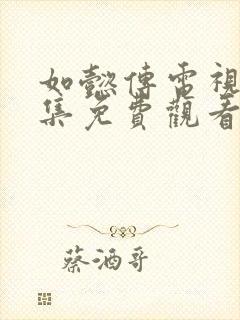 如懿傳電視
集免費觀看
蔡酒哥